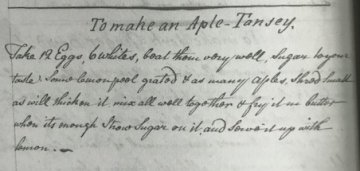 To make an Aple-Tansey.
Take 12 Eggs, 6 whites, beat them very well, Sugar to your
taste, Some lemon peel grated & as many Aples, Shred small
as will thicken it mix all well together & fry it in butter
when its enough Strow Sugar on it, and Serve it up with
lemon. —